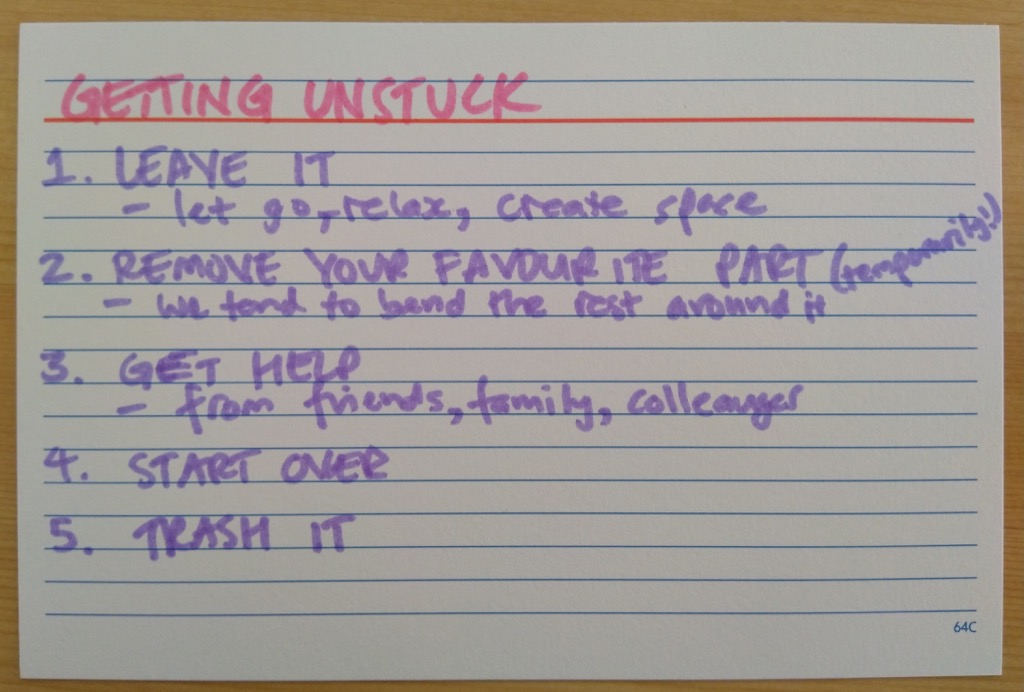 GETTING UNSTUCK
1. LEAVE IT
- let go, relax, create space
2. REMOVE YOUR FAVOURITE PART (temporarily!)
- we tend to bend the rest around it
3. GET HELP
- from friends, family, colleauges
4. START OVER
5. TRASH IT
64C